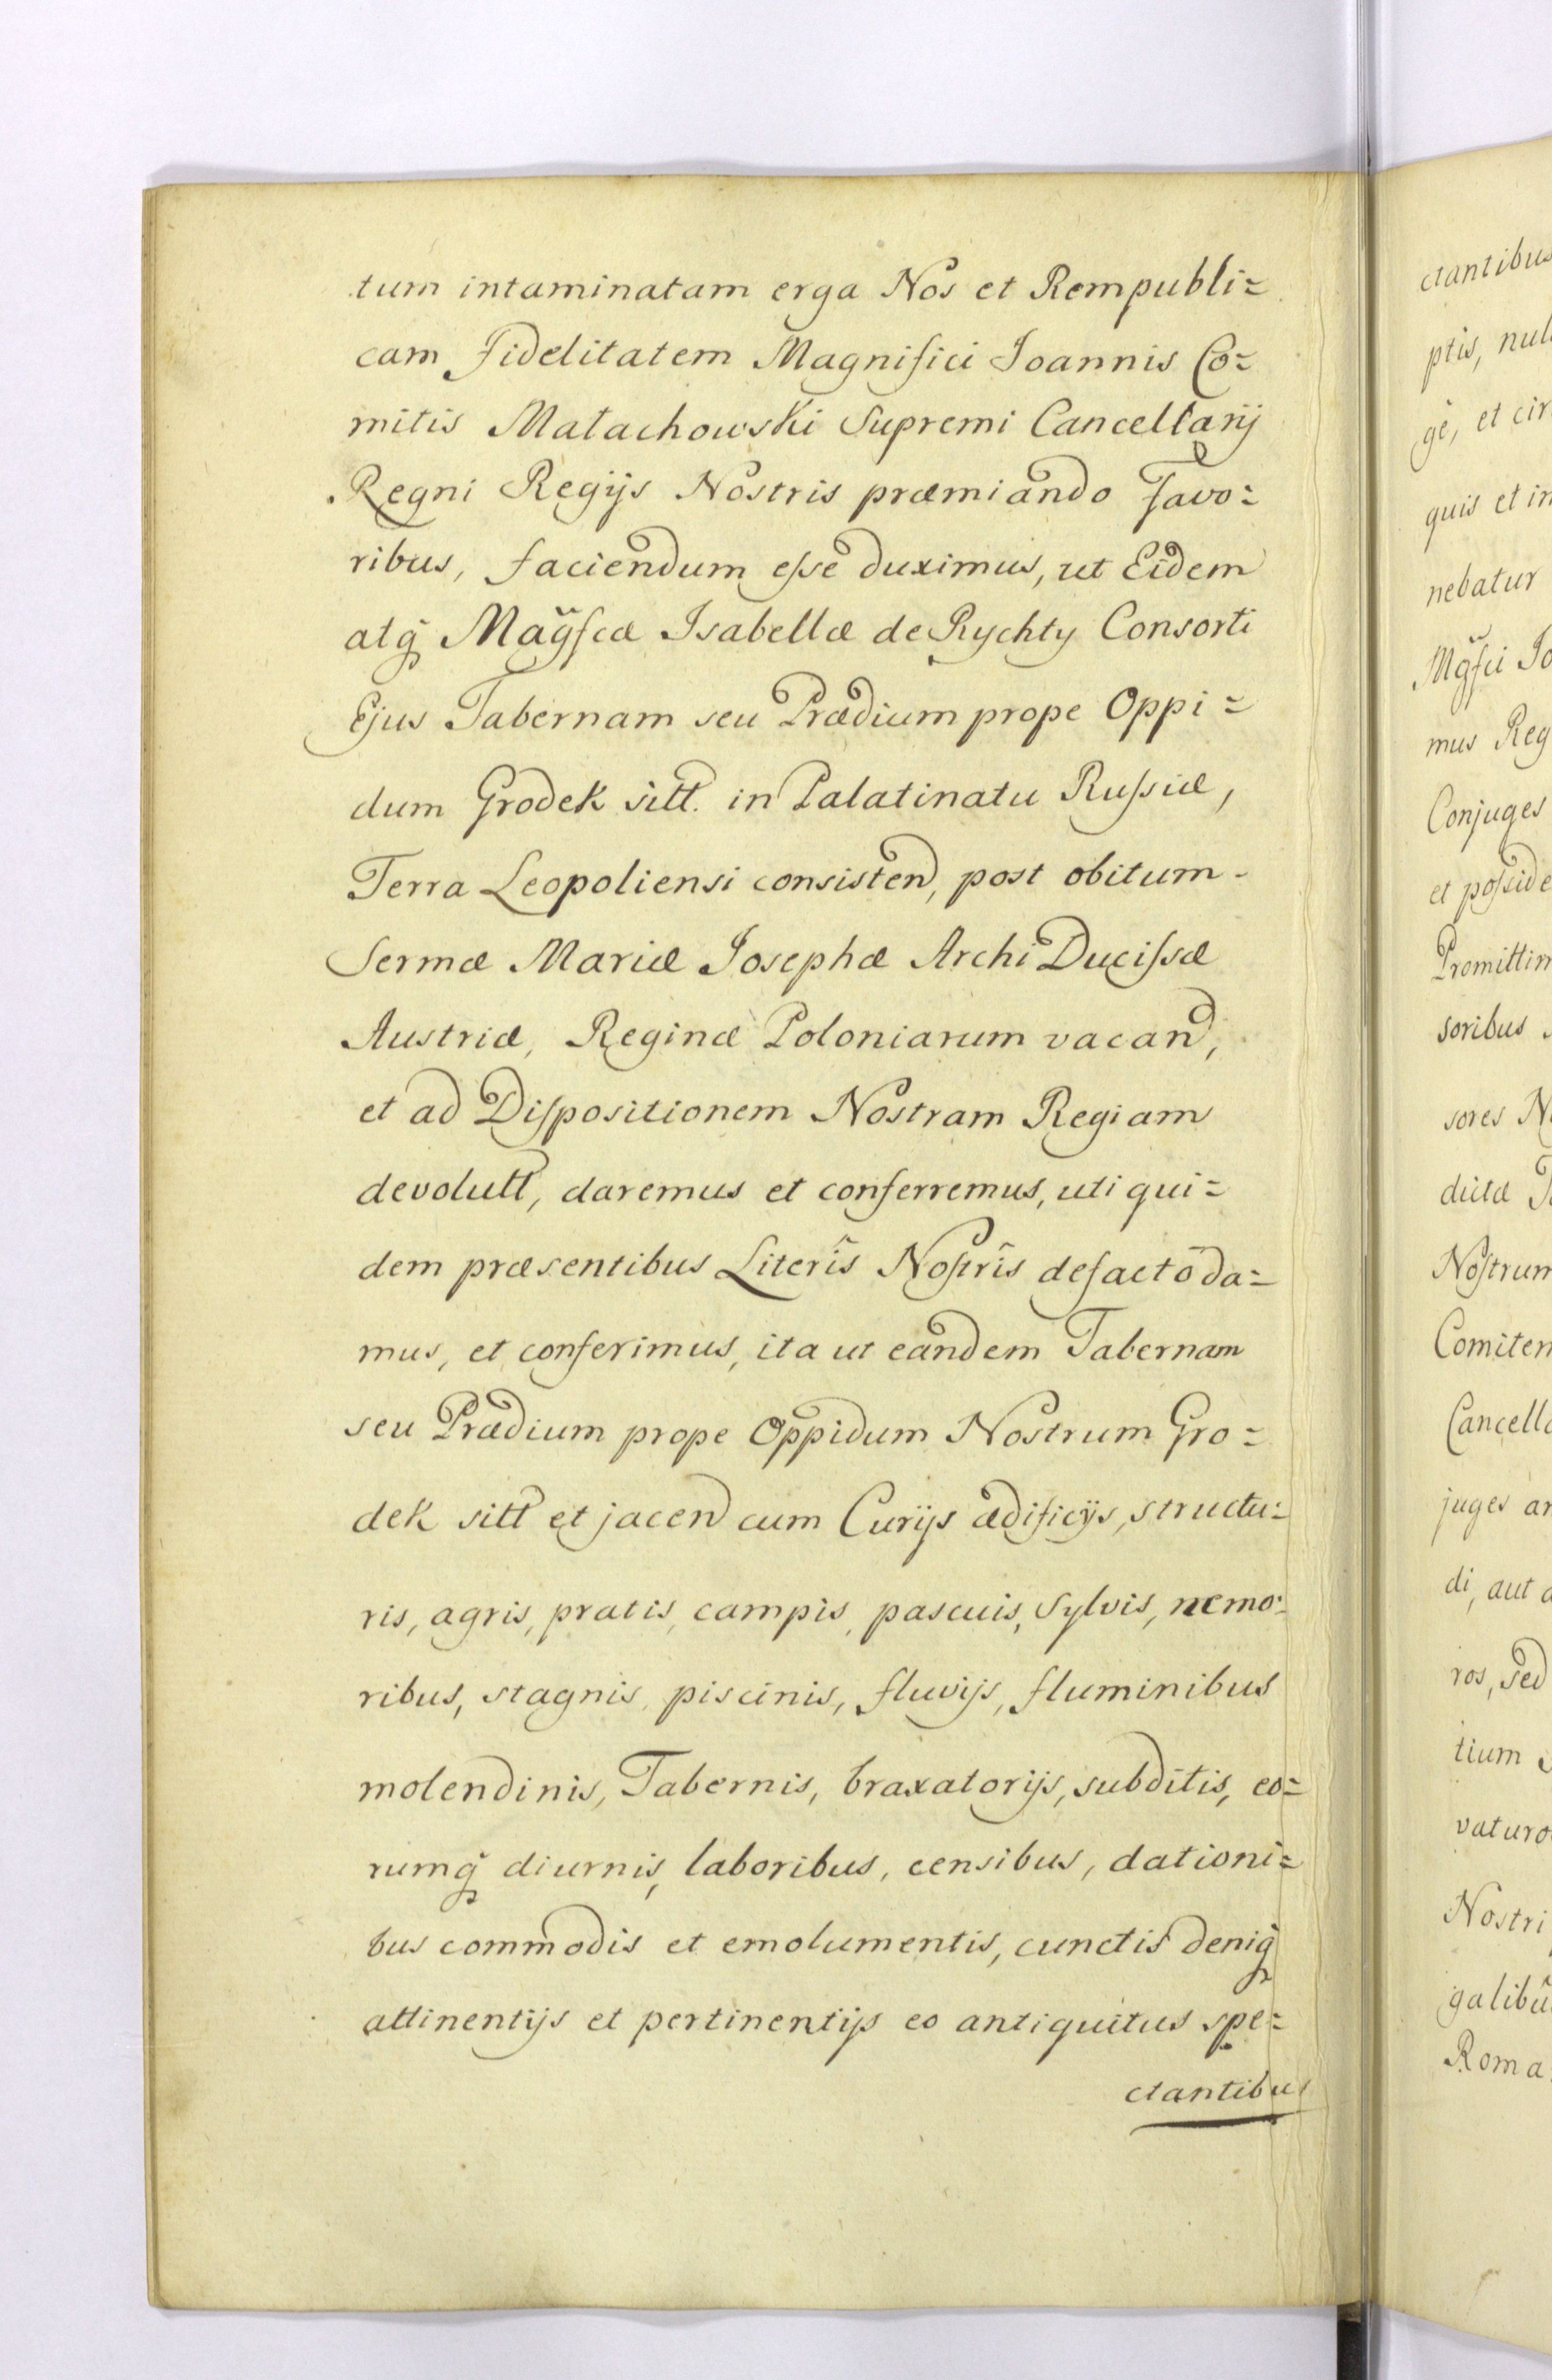 tum intaminatam erga Nos et Rempubli=
cam Fidelitatem Magnifici Joannis Co=
mitis Małachowski Supremi Cancellarij
Regni Regijs Nostris præmiando Favo=
ribus, faciendum esse duximus, ut Eidem
atq̃ Mag̃fcæ Isabellæ de Rychty Consorti
Ejus Tabernam seu Prædium prope Oppi=
dum Grodek sitt. in Palatinatu Russiæ,
Terra Leopoliensi consisten̄, post obitum
Sermæ Mariæ Josephæ Archi Ducissæ
Austriæ, Reginæ Poloniarum vacan̄,
et ad Dispositionem Nostram Regiam
devolutt, daremus et conferremus, uti qui=
dem præsentibus Literis Nostris defacto da=
mus, et conferimus, ita ut eandem Tabernam
seu Prædium prope Oppidum Nostrum Gro=
dek sitt et jacen̄ cum Curijs ædificijs, structu=
ris, agris, pratis, campis, pascuis, Sylvis, nemo=
ribus, stagnis, piscinis, fluvijs, fluminibus
molendinis, Tabernis, braxatorijs, subditis, eo=
rumq̃ diurnis, laboribus, censibus, dationi=
bus commodis et emolumentis, cunctis deniq̃
attinentijs et pertinentijs eo antiquitus spe=
ctantibus
ctantibus
ptis, nul
gè, et cir
quis et in
nebatur
Mg̃fci Jo
mus Reg
Conjuges
et posside
Promittim
soribus
sores N
dictæ T
Nostrum
Comitem
Cancella
juges an
di, aut a
ros, sed
tium
vaturo
Nostri
galibu
Roma